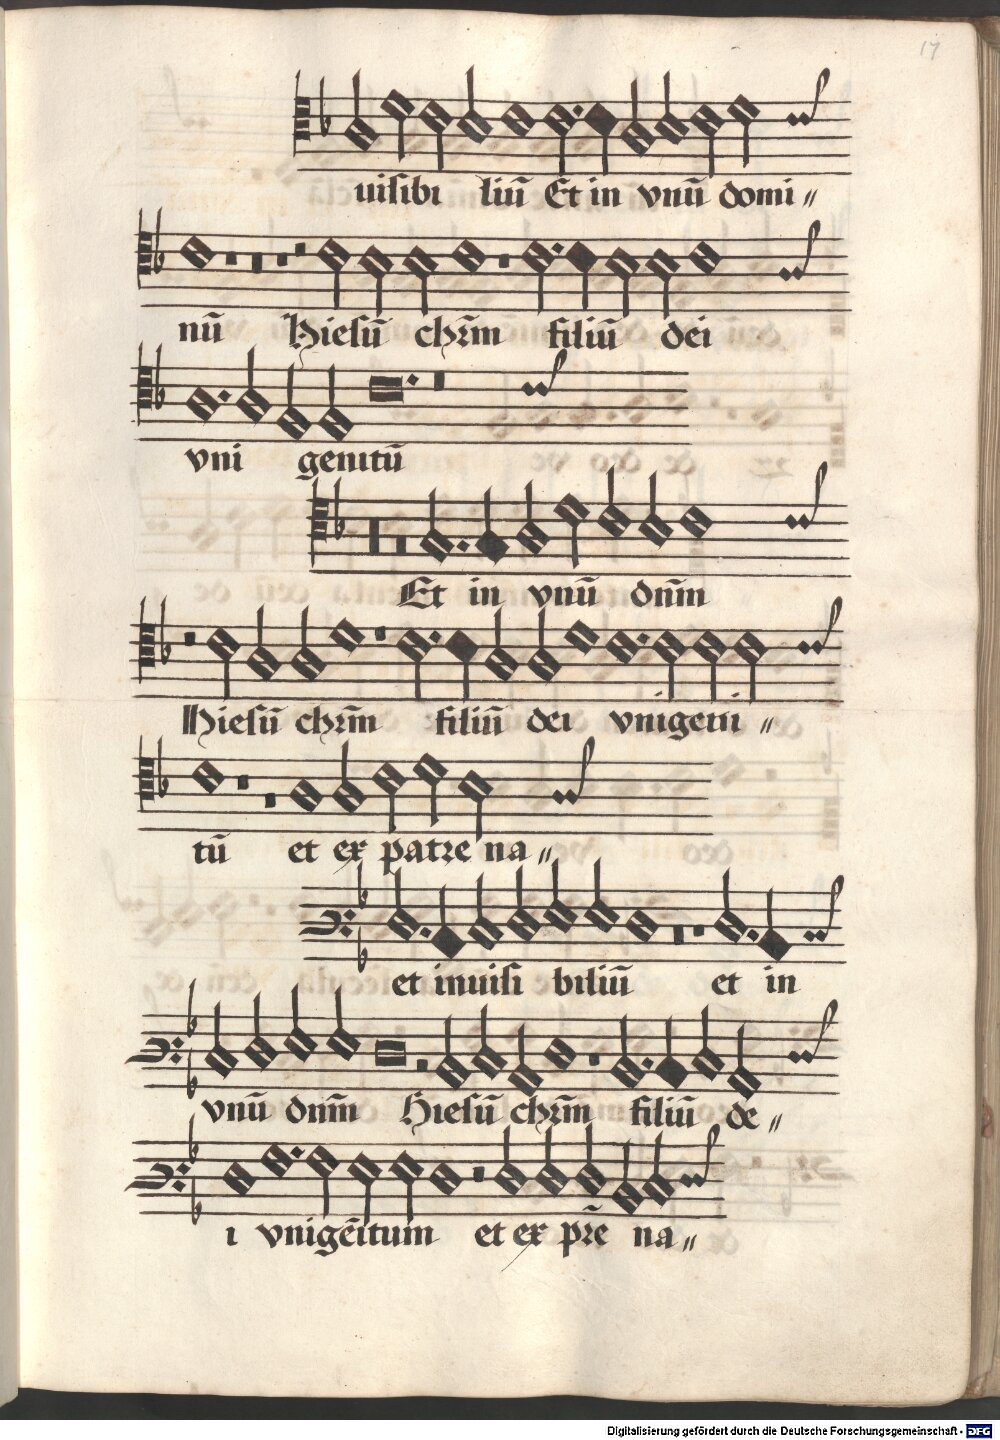 17
uisibi liū Et in vnū domi〃
nū Hiesū chr̄m filiū dei
vni genitū
Et in vnū dn̄m
Hiesū chr̄m filiū dei vnigeni〃
tū et ex patre na〃
et inuisi biliū et in
vnū dn̄m Hiesū chr̄m filiū de〃
i vnigēitum et ex pr̄e na〃
Digitalisierung gefördert durch die Deutsche Forschungsgemeinschaft - DFG